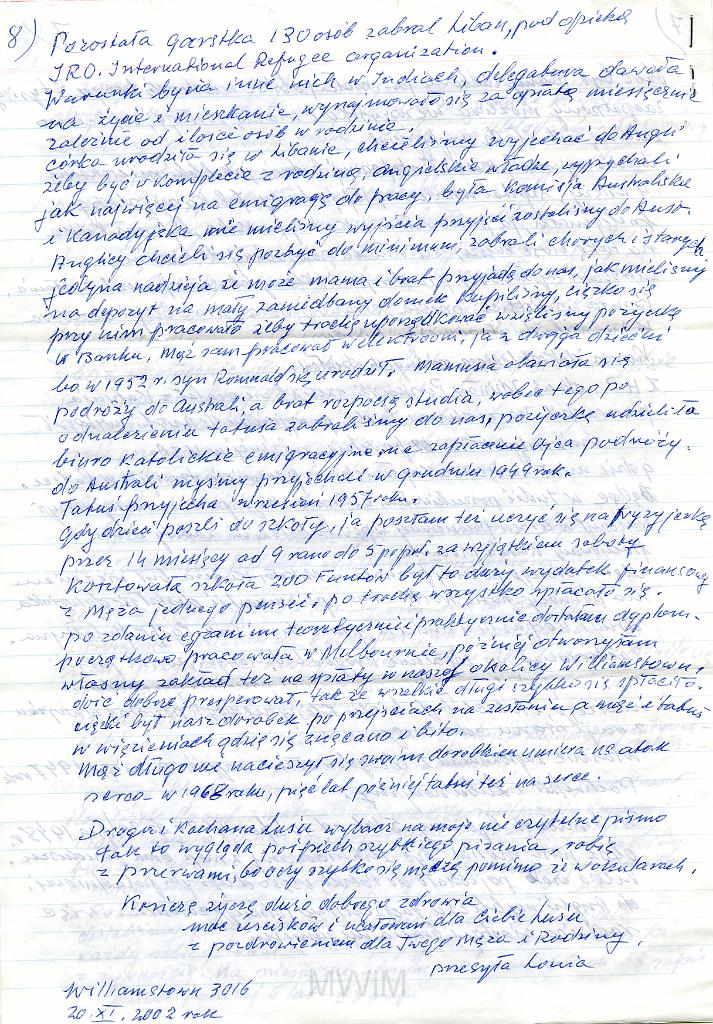 8) Pozostała garstka 130 osób zabrał Liban, pod opieką
IRO. International Refugee Organization.
Warunki bycia inne nich w Indiach, delegatura dawała
na życie i mieszkanie, wynajmowało się za opłatą miesięcznie
zależnie od ilość osób w rodzinie.
córka urodziła się w Libanie, chcieliśmy wyjechać do Anglii
żeby być w komplecie z rodziną, angielskie władze, wypychali
jak najwięcej na emigrację do pracy, była Komisja Australijska
i Kanadyjska nie mieliśmy wyjścia przyjęci zostaliśmy do Austr.
Anglicy chcieli się pozbyć do minimum, zabrali chorych i starych
jedyna nadzieja że może mama i brat przyjadą do nas, jak mieliśmy
na depozyt na mały zaniedbany domek kupiliśmy, ciężko się
przy nim pracowało żeby trochę uporządkować wzięliśmy pożyczkę
w Banku, Mąż sam pracował w elektrowni, ja z dwojga dziećmi
bo w 1952 r. syn Romuald się urodził. Mamusia obawiała się
podróży do Australi, a brat rozpoczą studia, wobec tego po
odnalezieniu tatusa zabraliśmy do nas, pożyczkę udzieliła
biuro Katolickie emigracyjne na zapłacenie ojca podróży.
do Australi myśmy przyjechali w grudniu 1949 rok.
Tatuś przyjecha wrzesień 1957 roku.
Gdy dzieci poszli do szkoły, ja poszłam też uczyć się na fryzyjerkę
przez 14 miesięcy od 9 rano do 5 popoł. za wyjątkiem soboty
Kosztowała szkoła 200 Funtów był to duży wydatek finansowy
z Męża jednego pensii, po trochę wszystko spłacało się.
po zdaniu egzaminu teoretycznie i praktycznie dostałam dyplom.
początkowo pracowała w Melbournie, później otworzyłam
własny zakład też na spłaty w naszej okolicy Williamstown,
dość dobrze prosperował, tak że wszelkie długi szybko się spłaciło.
ciężki był nasz dorobek po przejściach na zesłaniu, a mąż i tatuś
w więzieniach gdzie się znęcano i bito.
Mąż długo nie nacieszył się swoim dorobkiem umiera na atak
serca – w 1968 roku, pięć lat później tatuś też na serce.
Droga i Kochana Lusiu wybacz na moje nie czytelne pismo
tak to wygląda pośpiech szybkiego pisania, robię
z przerwami, bo oczy szybko się męczą pomimo że w okularach.
Kończę życzę dużo dobrego zdrowia
moc uścisków i ucałowań dla Ciebie Lusiu
z pozdrowieniem dla Twego Męża i Rodziny,
przesyła Lonia
Williamstown 3016
20. XI. 2002 rok
MWiM